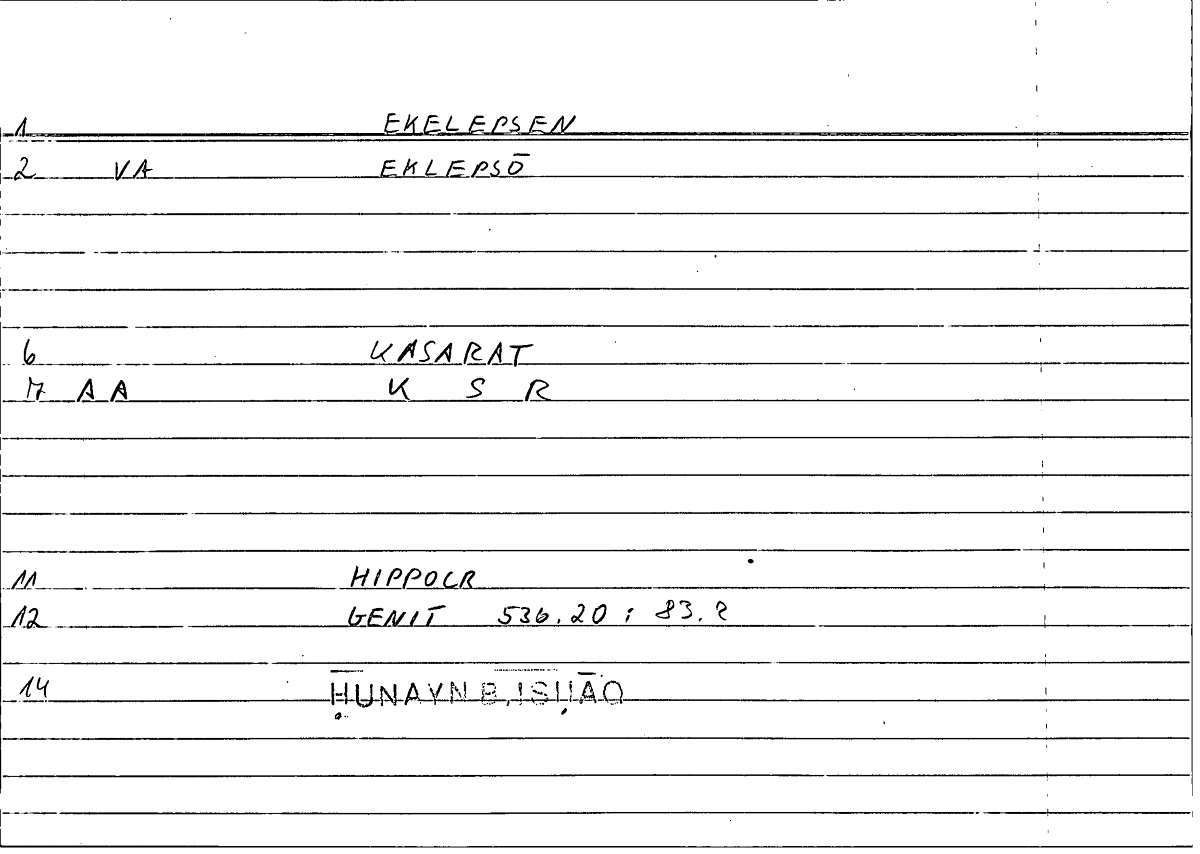 1 EKELEPSEN
2 VA EKLEPSŌ
6 KASARAT
7 AA K S R
11 HIPPOCR
12 GENIT 536.20 ; 83.2
14 ḤUNAYN B. ISḤĀQ